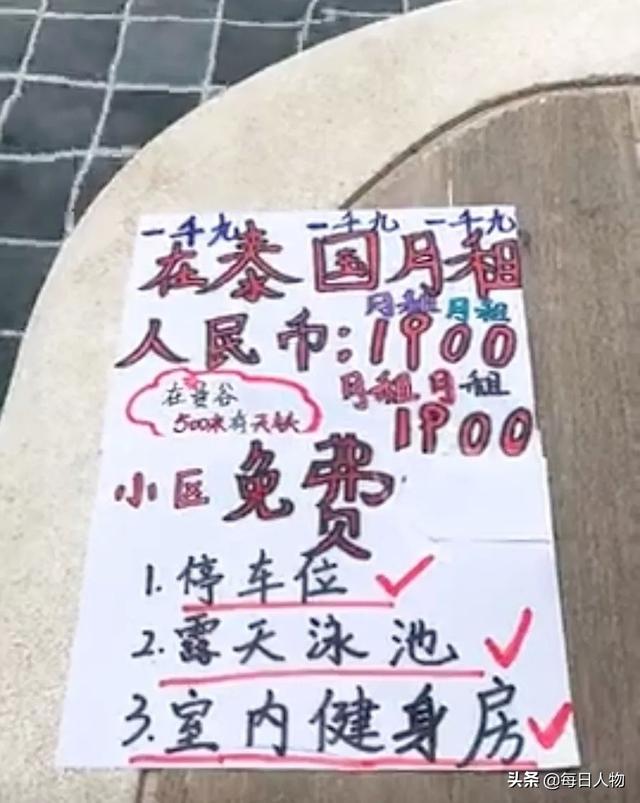 一千九 一千九 一千九
在泰国月租
月租 月租
人民币:1900
月租月租
在曼谷
500米有天铁
1900
小区免费
1.停车位
2.露天泳池
3.室内健身房
头条 @每日人物